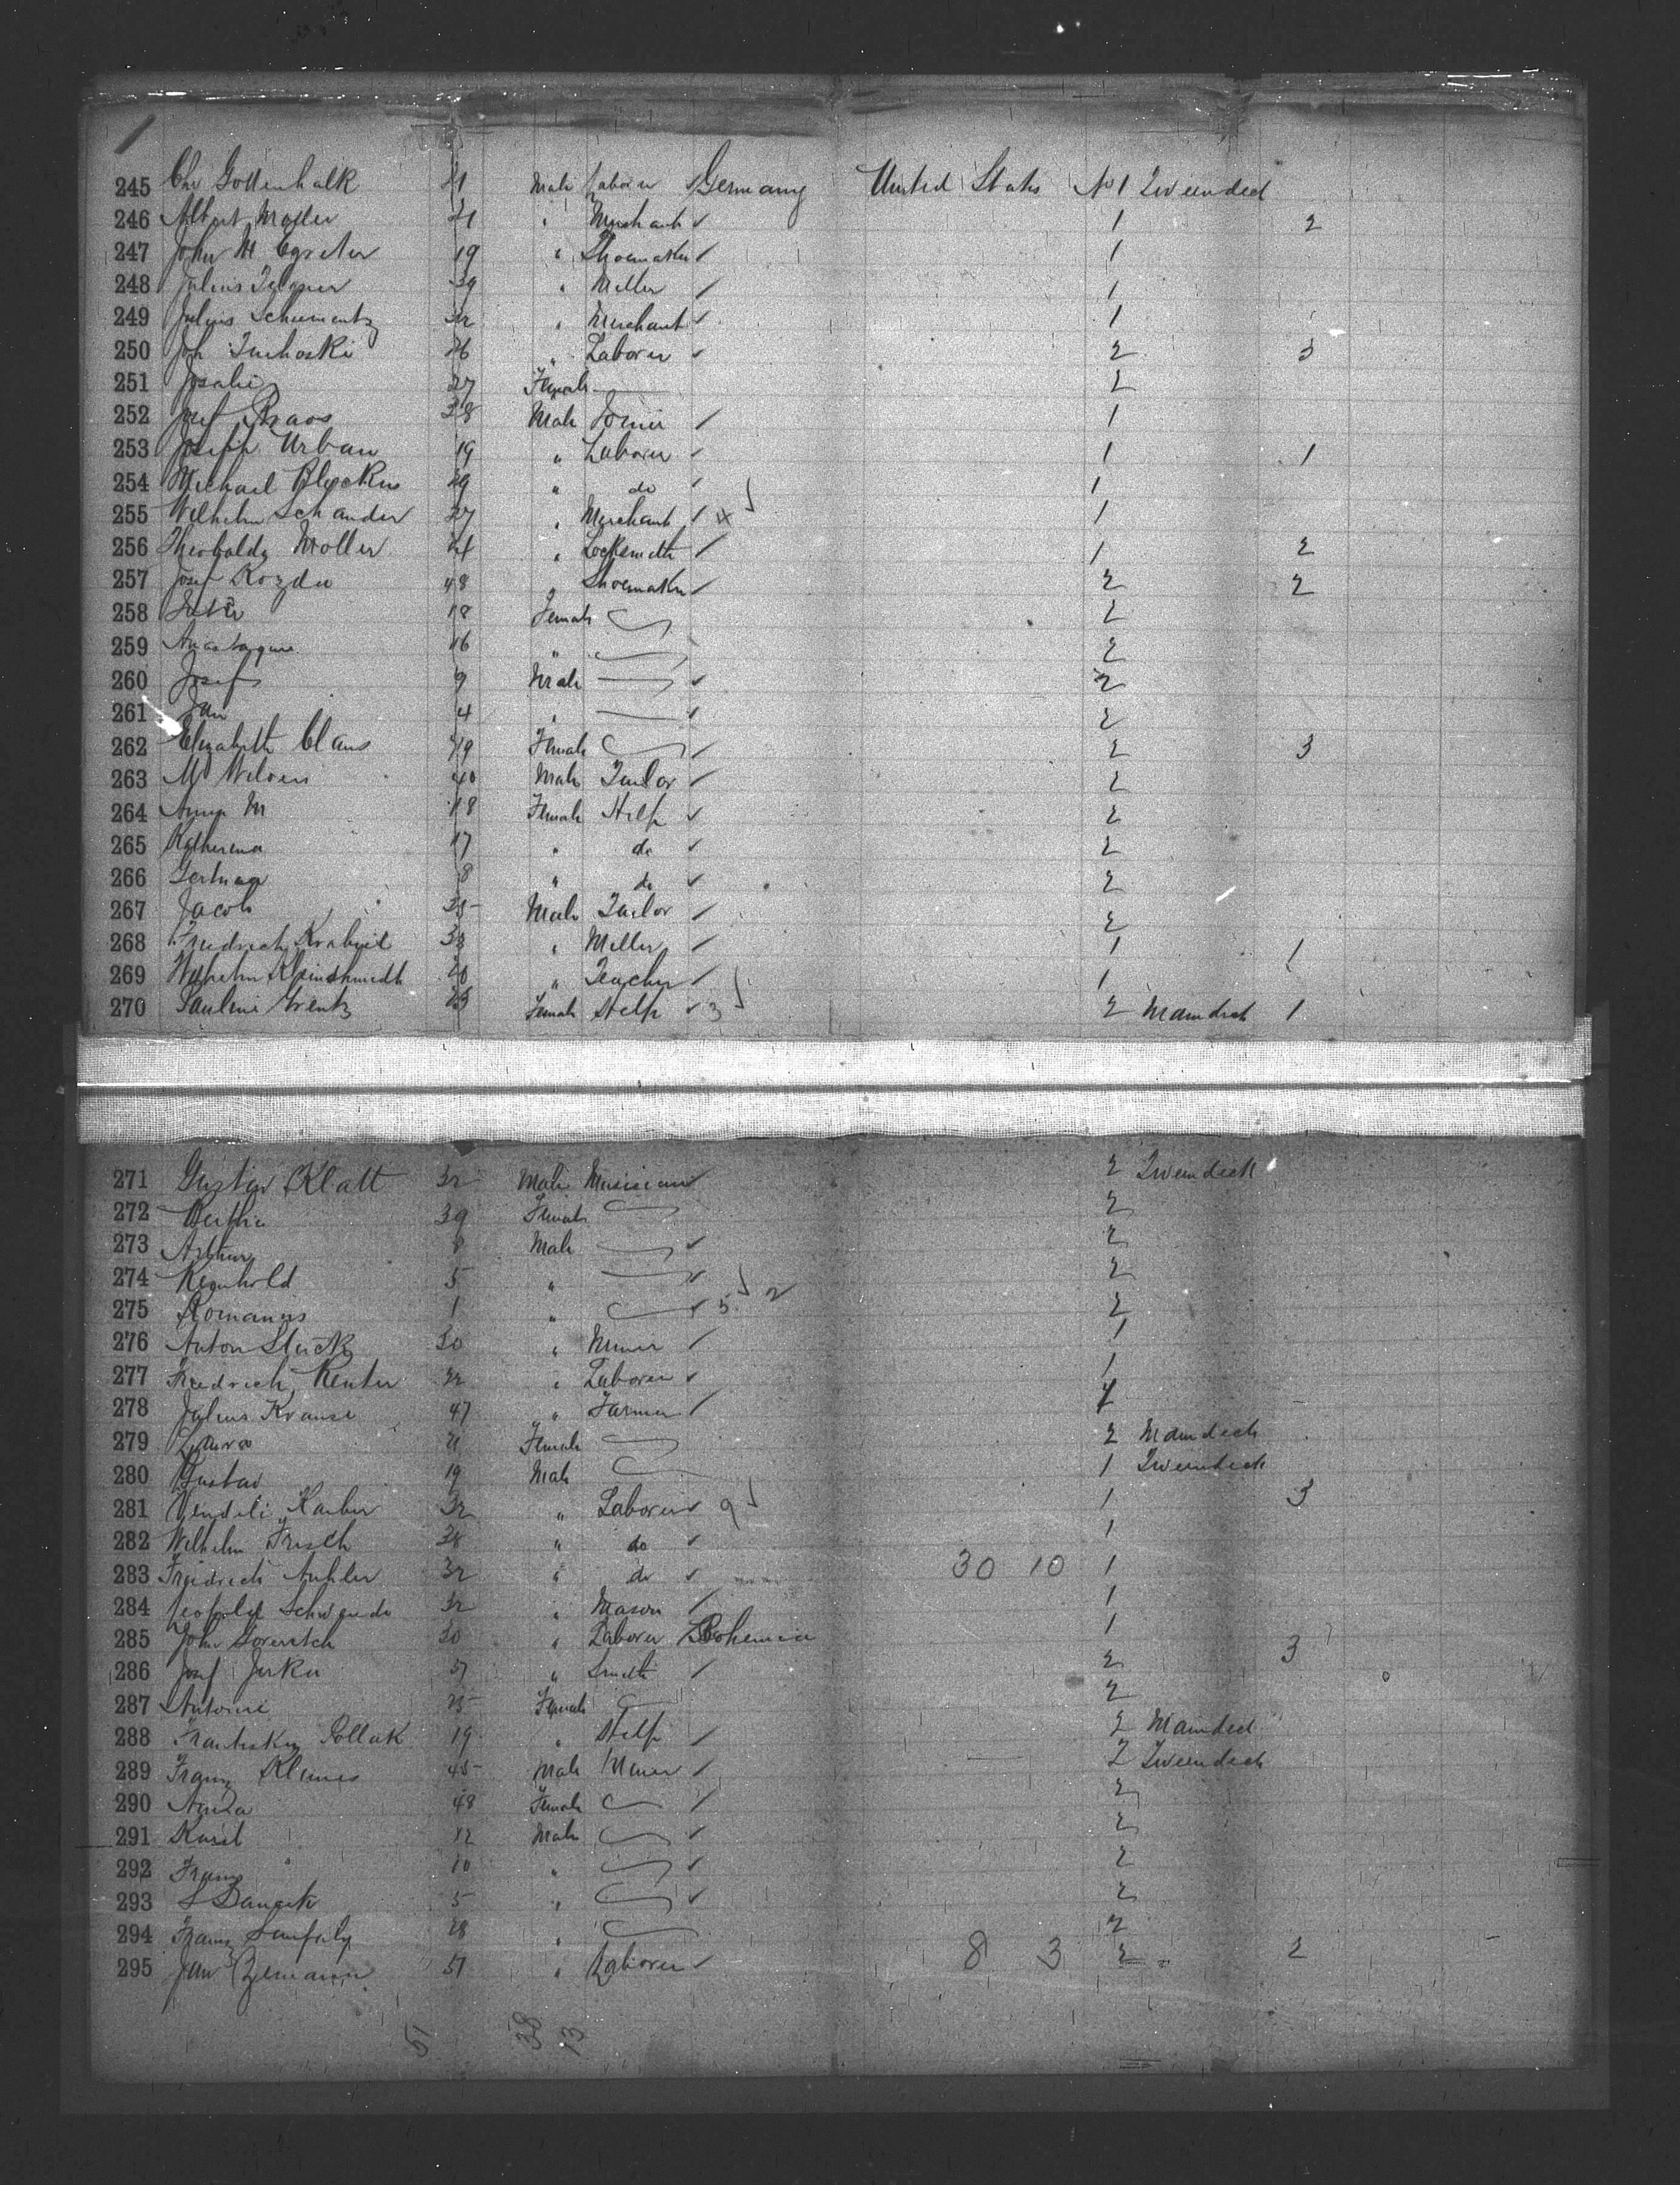 245 Chr Gottenhalk 21 Male Laborer Germany United States No 1 Zweendeck
246 Albert Moller 21 " Merchant 1 2
247 John M Egreter 19 " Shoemaker 1
248 Julius 39 " Miller 1
249 Julius Schumentz 32 " Merchant 1
250 Joh 26 " Laborer 2 3
251 27 Female 2
252 Josef 38 Male 1
253 Joseph Urban 19 " Laborer 1 1
254 Michael 29 " do 1
255 Wilhelm Schander 27 " Merchant 4 1
256 Moller 21 " Locksmith 1 2
257 Josef Kozda 48 " Shoemaker 2 2
258 18 Female 2
259 16 " 2
260 Josef 9 Male 2
261 Jan 4 " 2
262 Elizabeth Claus 49 Female 2 3
263 M 40 Male Tailor 2
264 Anna M 18 Female Help 2
265 Katherina 17 " do 2
266 8 " do 2
267 Jacob 35 Male Tailor 2
268 Friedrich 33 " Miller 1 1
269 Wilhelm Kleinschmidt 20 " Teacher 1
270 Pauline 23 Female Help 3 2 Maindeck 1
271 Gustav Klatt 32 Male Musician 2 Zweendeck
272 Bertha 39 Female 2
273 Arthur 8 Male 2
274 Reinhold 5 " 2 2
275 Romanus 1 " 5 2
276 Anton 30 " Miner 1
277 Friedrich Renter 32 " Laborer 1
278 Julius Krause 47 " Farmer 1
279 Laura 21 Female 2 Maindeck
280 Gustav 19 Male 1 Zweendeck
281 32 " Laborer 9 1 3
282 Wilhelm Frisch 38 " do 1
283 Friedrich 32 " do 30 10 1
284 Leopold 32 " Mason 1
285 John 30 " Laborer Bohemia 1
286 Josef 51 " Smith 2 3
287 Antonie 25 Female 2
288 Pollak 19 " Help 2 Maindeck
289 Franz Klimes 45 Male Miner 2 Zweendeck
290 48 Female 2
291 Karel 12 Male 2
292 Franz 10 " 2
293 5 " 2
294 Franz 28 " 2
295 Jan 51 " Laborer 8 3 2 2
51 38 13